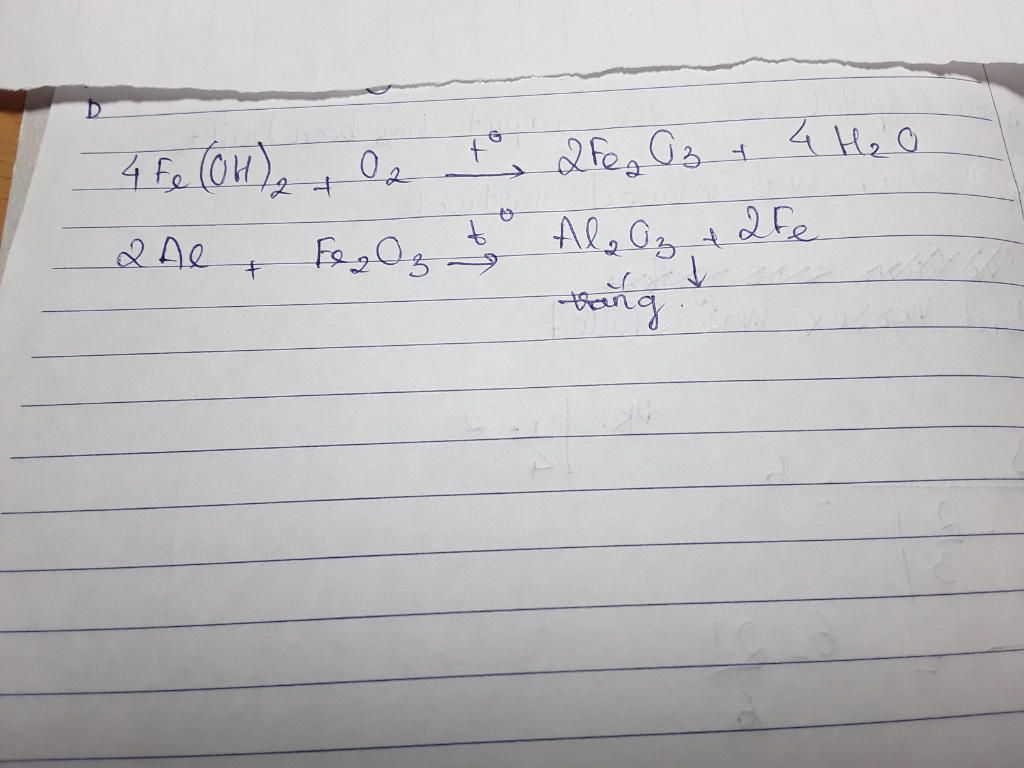 D
4Fe(OH)₂ + O₂ —t°→ 2Fe₂O₃ + 4H₂O
2Al + Fe₂O₃ —t°→ Al₂O₃ + 2Fe
↓
trắng